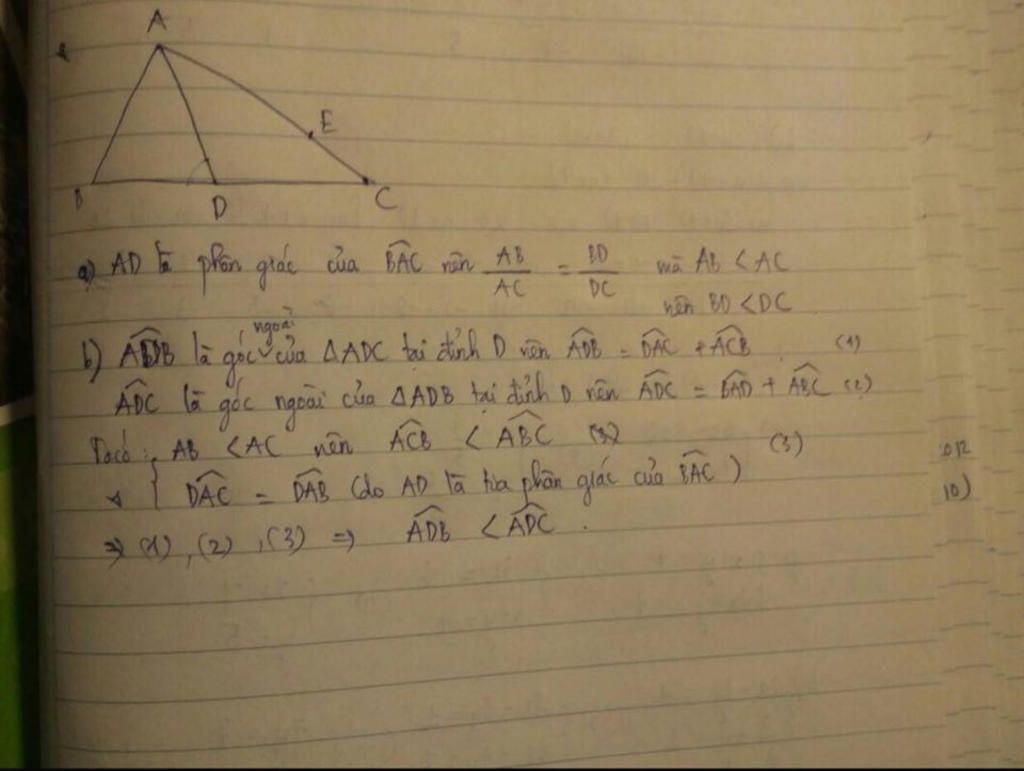 A
E
B
D
C
a) AD là phân giác của BAC nên AB/AC = BD/DC mà AB < AC
nên BD < DC
ngoài
b) ADB là góc của ΔADC tại đỉnh D nên ADB = DAC + ACB (1)
ADC là góc ngoài của ΔADB tại đỉnh D nên ADC = BAD + ABC (2)
Ta có : AB < AC nên ACB < ABC (3)
DAC = DAB (do AD là tia phân giác của BAC)
=> (1), (2), (3) => ADB < ADC .
10)